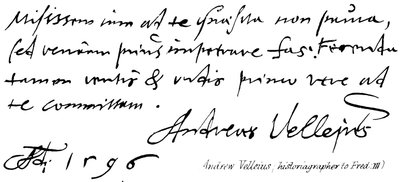 Misissem jam ad te Quæsita non pauca,
sed veniam prius impetrare fas.
tamen ventis & undis primo vere ad
te committam.
Andreas Velleius
1596
Andrew Velleius, historiagrapher to Fred. III)